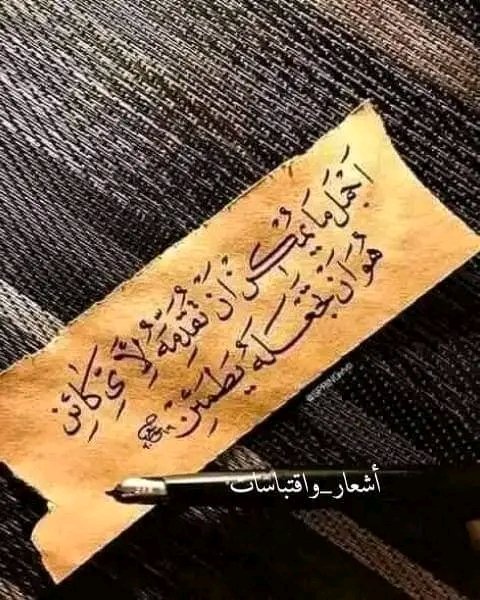 أَجْمَلَ مَا يُمْكِنْ أَنْ نُقَدِّمَهُ لِأَيِّ كَائِن
هُوَ أَنْ تَجْعَلَهُ يَطْمَئِنّ
أشعار_واقتباسات